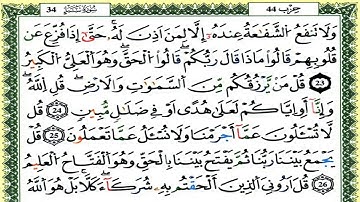 حزب 44 سورة سبإ 34
وَلَا تَنفَعُ الشَّفَٰعَةُ عِندَهُۥ إِلَّا لِمَنْ أَذِنَ لَهُۥ حَتَّىٰ إِذَا فُزِّعَ عَن
قُلُوبِهِمْ قَالُوا مَاذَا قَالَ رَبُّكُمْ قَالُوا الْحَقَّ وَهُوَ الْعَلِيُّ الْكَبِيرُ
23 قُلْ مَن يَرْزُقُكُم مِّنَ السَّمَٰوَٰتِ وَالْأَرْضِ قُلِ اللَّهُ
وَإِنَّا أَوْ إِيَّاكُمْ لَعَلَىٰ هُدًى أَوْ فِي ضَلَٰلٍ مُّبِينٍ 24 قُل
لَّا تُسْـَٔلُونَ عَمَّا أَجْرَمْنَا وَلَا نُسْـَٔلُ عَمَّا تَعْمَلُونَ 25 قُلْ
يَجْمَعُ بَيْنَنَا رَبُّنَا ثُمَّ يَفْتَحُ بَيْنَنَا بِالْحَقِّ وَهُوَ الْفَتَّاحُ الْعَلِيمُ
26 قُلْ أَرُونِيَ الَّذِينَ أَلْحَقْتُم بِهِۦ شُرَكَآءَ كَلَّا بَلْ هُوَ اللَّهُ